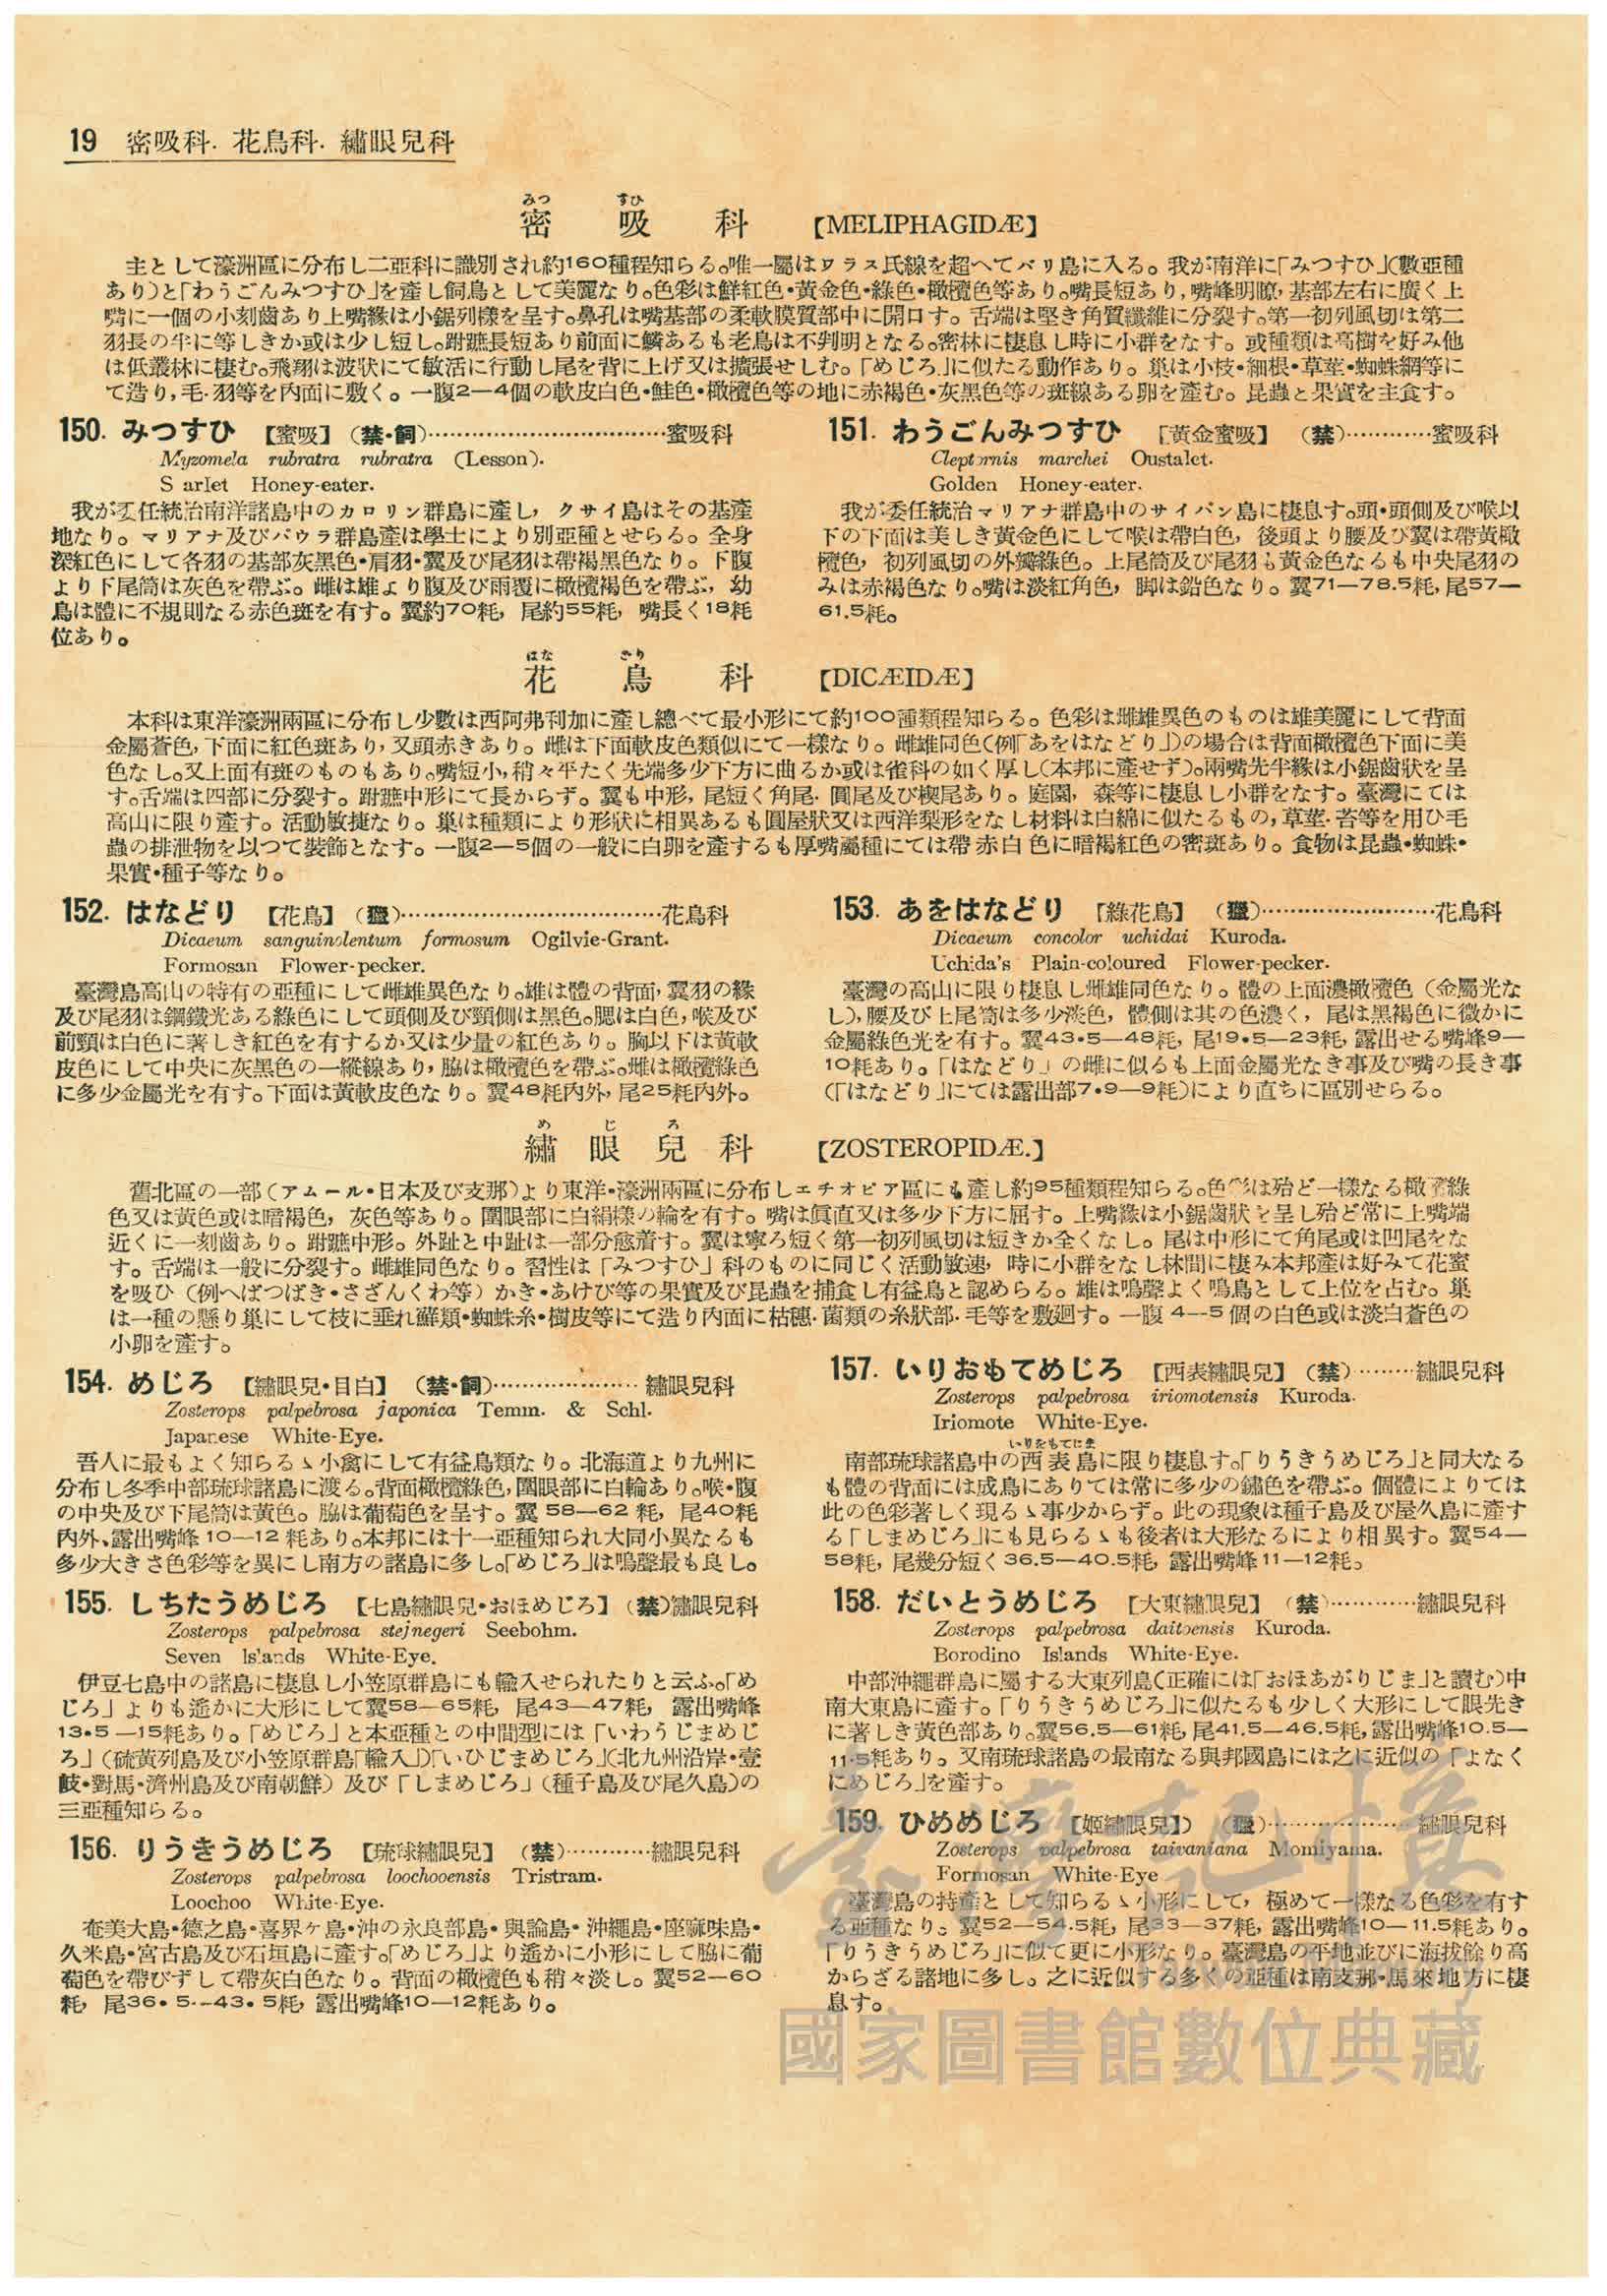 19 密吸科. 花鳥科. 繡眼兒科
みつ すひ
密吸科 【MELIPHAGIDÆ】
主として濠洲區に分布し二亞科に識別され約160種程知らる。唯一屬はワラス氏線を超へてバリ島に入る。我が南洋に「みつすひ」(數亞種
あり)と「わうごんみつすひ」を産し飼鳥として美麗なり。色彩は鮮紅色・黄金色・綠色・橄欖色等あり。嘴長短あり, 嘴峰明瞭, 基部左右に廣く上
嘴に一個の小刻齒あり上嘴緣は小鋸列樣を呈す。鼻孔は嘴基部の柔軟膜質部中に開口す。舌端は堅き角質纖維に分裂す。第一初列風切は第二
羽長の半に等しきか或は少し短し。跗蹠長短あり前面に鱗あるも老鳥は不判明となる。密林に棲息し時に小群をなす。或種類は高樹を好み他
は低叢林に棲む。飛翔は波狀にて敏活に行動し尾を背に上げ又は擴張せしむ。「めじろ」に似たる動作あり。巣は小枝・細根・草莖・蜘蛛網等に
て造り, 毛·羽等を内面に敷く。一腹2—4個の軟皮白色・鮭色・橄欖色等の地に赤褐色・灰黑色等の斑線ある卵を産む。昆蟲と果實を主食す。
150. みつすひ 【蜜吸】 (禁・飼)……………………………蜜吸科
Myzomela rubratra rubratra (Lesson).
S arlet Honey-eater.
我が委任統治南洋諸島中のカロリン群島に産し, クサイ島はその基産
地なり。マリアナ及びパウラ群島産は學士により別亞種とせらる。全身
深紅色にして各羽の基部灰黑色・肩羽・翼及び尾羽は帶褐黑色なり。下腹
より下尾筒は灰色を帶ぶ。雌は雄より腹及び雨覆に橄欖褐色を帶ぶ, 幼
鳥は體に不規則なる赤色斑を有す。翼約70粍, 尾約55粍, 嘴長く18粍
位あり。
151. わうごんみつすひ 【黄金蜜吸】 (禁)…………蜜吸科
Cleptornis marchei Oustalet.
Golden Honey-eater.
我が委任統治マリアナ群島中のサイパン島に棲息す。頭・頭側及び喉以
下の下面は美しき黄金色にして喉は帶白色, 後頭より腰及び翼は帶黄橄
欖色, 初列風切の外瓣綠色。上尾筒及び尾羽も黄金色なるも中央尾羽の
みは赤褐色なり。嘴は淡紅角色, 脚は鉛色なり。翼71—78.5粍, 尾57—
61.5粍。
はな どり
花鳥科 【DICÆIDÆ】
本科は東洋濠洲兩區に分布し少數は西阿弗利加に産し總べて最小形にて約100種類程知らる。色彩は雌雄異色のものは雄美麗にして背面
金屬蒼色, 下面に紅色斑あり, 又頭赤きあり。雌は下面軟皮色類似にて一樣なり。雌雄同色(例「あをはなどり」)の場合は背面橄欖色下面に美
色なし。又上面有斑のものもあり。嘴短小, 稍々平たく先端多少下方に曲るか或は雀科の如く厚し(本邦に産せず)。兩嘴先半緣は小鋸齒狀を呈
す。舌端は四部に分裂す。跗蹠中形にて長からず。翼も中形, 尾短く角尾·圓尾及び楔尾あり。庭園, 森等に棲息し小群をなす。臺灣にては
高山に限り産す。活動敏捷なり。巣は種類により形狀に相異あるも圓屋狀又は西洋梨形をなし材料は白綿に似たるもの, 草莖·苔等を用ひ毛
蟲の排泄物を以つて裝飾となす。一腹2—5個の一般に白卵を産するも厚嘴屬種にては帶赤白色に暗褐紅色の密斑あり。食物は昆蟲・蜘蛛・
果實・種子等なり。
152. はなどり 【花鳥】 (獵)……………………………花鳥科
Dicaeum sanguinolentum formosum Ogilvie-Grant.
Formosan Flower-pecker.
臺灣島高山の特有の亞種にして雌雄異色なり。雄は體の背面, 翼羽の緣
及び尾羽は鋼鐵光ある綠色にして頭側及び頸側は黑色。腮は白色, 喉及び
前頸は白色に著しき紅色を有するか又は少量の紅色あり。胸以下は黄軟
皮色にして中央に灰黑色の一縱線あり, 脇は橄欖色を帶ぶ。雌は橄欖綠色
に多少金屬光を有す。下面は黄軟皮色なり。翼48粍内外, 尾25粍内外。
153. あをはなどり 【綠花鳥】 (獵)……………………花鳥科
Dicaeum concolor uchidai Kuroda.
Uchida's Plain-coloured Flower-pecker.
臺灣の高山に限り棲息し雌雄同色なり。體の上面濃橄欖色 (金屬光な
し), 腰及び上尾筒は多少淡色, 體側は其の色濃く, 尾は黑褐色に微かに
金屬綠色光を有す。翼43・5—48粍, 尾19・5—23粍, 露出せる嘴峰9—
10粍あり。「はなどり」の雌に似るも上面金屬光なき事及び嘴の長き事
(「はなどり」にては露出部7・9—9粍)により直ちに區別せらる。
め じ ろ
繡眼兒科 【ZOSTEROPIDÆ.】
舊北區の一部(アムール・日本及び支那)より東洋・濠洲兩區に分布しエチオピア區にも産し約95種類程知らる。色彩は殆ど一樣なる橄欖綠
色又は黄色或は暗褐色, 灰色等あり。圍眼部に白絹樣の輪を有す。嘴は眞直又は多少下方に屈す。上嘴緣は小鋸齒狀を呈し殆ど常に上嘴端
近くに一刻齒あり。跗蹠中形。外趾と中趾は一部分癒着す。翼は寧ろ短く第一初列風切は短きか全くなし。尾は中形にて角尾或は凹尾をな
す。舌端は一般に分裂す。雌雄同色なり。習性は「みつすひ」科のものに同じく活動敏速, 時に小群をなし林間に棲み本邦產は好みて花蜜
を吸ひ(例へばつばき・さざんくわ等)かき・あけび等の果實及び昆蟲を捕食し有益鳥と認めらる。雄は鳴聲よく鳴鳥として上位を占む。巣
は一種の懸り巣にして枝に垂れ蘚類・蜘蛛糸・樹皮等にて造り内面に枯穗·菌類の糸狀部·毛等を敷廻す。一腹4—5個の白色或は淡白蒼色の
小卵を産す。
154. めじろ 【繡眼兒・目白】 (禁・飼)………………… 繡眼兒科
Zosterops palpebrosa japonica Temm. & Schl.
Japanese White-Eye.
吾人に最もよく知らるゝ小禽にして有益鳥類なり。北海道より九州に
分布し冬季中部琉球諸島に渡る。背面橄欖綠色, 圍眼部に白輪あり。喉・腹
の中央及び下尾筒は黄色。脇は葡萄色を呈す。翼58—62粍, 尾40粍
内外、露出嘴峰10—12粍あり。本邦には十一亞種知られ大同小異なるも
多少大きさ色彩等を異にし南方の諸島に多し。「めじろ」は鳴聲最も良し。
155. しちたうめじろ 【七島繡眼兒・おほめじろ】 (禁)繡眼兒科
Zosterops palpebrosa stejnegeri Seebohm.
Seven Islands White-Eye.
伊豆七島中の諸島に棲息し小笠原群島にも輸入せられたりと云ふ。「め
じろ」よりも遙かに大形にして翼58—65粍, 尾43—47粍, 露出嘴峰
13・5—15粍あり。「めじろ」と本亞種との中間型には「いわうじまめじ
ろ」(硫黄列島及び小笠原群島「輸入」)「いひじまめじろ」(北九州沿岸・壹
岐・對馬・濟州島及び南朝鮮) 及び「しまめじろ」(種子島及び尾久島)の
三亞種知らる。
156. りうきうめじろ 【琉球繡眼兒】 (禁)…………繡眼兒科
Zosterops palpebrosa loochooensis Tristram.
Loochoo White-Eye.
奄美大島・德之島・喜界ヶ島・沖の永良部島・與論島・沖繩島・座蔴味島・
久米島・宮古島及び石垣島に産す。「めじろ」より遙かに小形にして脇に葡
萄色を帶びずして帶灰白色なり。背面の橄欖色も稍々淡し。翼52—60
粍, 尾36・5--43・5粍, 露出嘴峰10—12粍あり。
157. いりおもてめじろ 【西表繡眼兒】 (禁)………繡眼兒科
Zosterops palpebrosa iriomotensis Kuroda.
Iriomote White-Eye.
いりをもてじま
南部琉球諸島中の西表島に限り棲息す。「りうきうめじろ」と同大なる
も體の背面には成鳥にありては常に多少の鏽色を帶ぶ。個體によりては
此の色彩著しく現るゝ事少からず。此の現象は種子島及び屋久島に産す
る「しまめじろ」にも見らるゝも後者は大形なるにより相異す。翼54—
58粍, 尾幾分短く36.5—40.5粍, 露出嘴峰11—12粍。
158. だいとうめじろ 【大東繡眼兒】 (禁)…………繡眼兒科
Zosterops palpebrosa daitoensis Kuroda.
Borodino Islands White-Eye.
中部沖繩群島に屬する大東列島(正確には「おほあがりじま」と讀む)中
南大東島に産す。「りうきうめじろ」に似たるも少しく大形にして眼先き
に著しき黄色部あり。翼56.5—61粍, 尾41.5—46.5粍, 露出嘴峰10.5—
11.5粍あり。又南琉球諸島の最南なる與邦國島には之に近似の「よなく
にめじろ」を産す。
159. ひめめじろ 【姬繡眼兒】) (獵)………………… 繡眼兒科
Zosterops palpebrosa taivaniana Momiyama.
Formosan White-Eye
臺灣島の特産として知らるゝ小形にして, 極めて一樣なる色彩を有す
る亞種なり。翼52—54.5粍, 尾33—37粍, 露出嘴峰10—11.5粍あり。
「りうきうめじろ」に似て更に小形なり。臺灣島の平地並びに海拔餘り高
からざる諸地に多し。之に近似する多くの亞種は南支那・馬來地方に棲
息す。
臺灣記憶
國家圖書館數位典藏